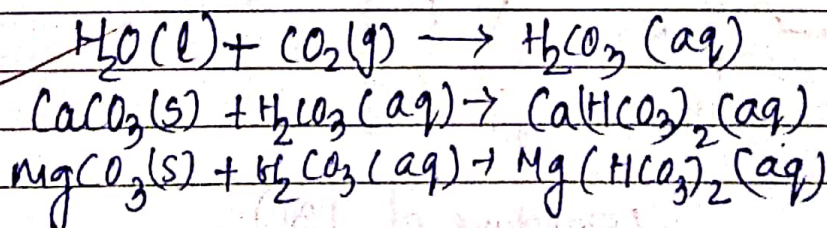 H₂O(l) + CO₂(g) → H₂CO₃ (aq)
CaCO₃(s) + H₂CO₃(aq) → Ca(HCO₃)₂(aq)
MgCO₃(s) + H₂CO₃(aq) → Mg(HCO₃)₂(aq)